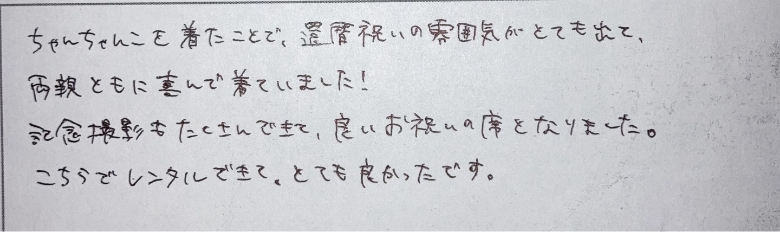 ちゃんちゃんこを着たことで、還暦祝いの雰囲気がとても出て、
両親ともに喜んで着ていました！
記念撮影もたくさんできて、良いお祝いの席となりました。
こちらでレンタルできて、とても良かったです。